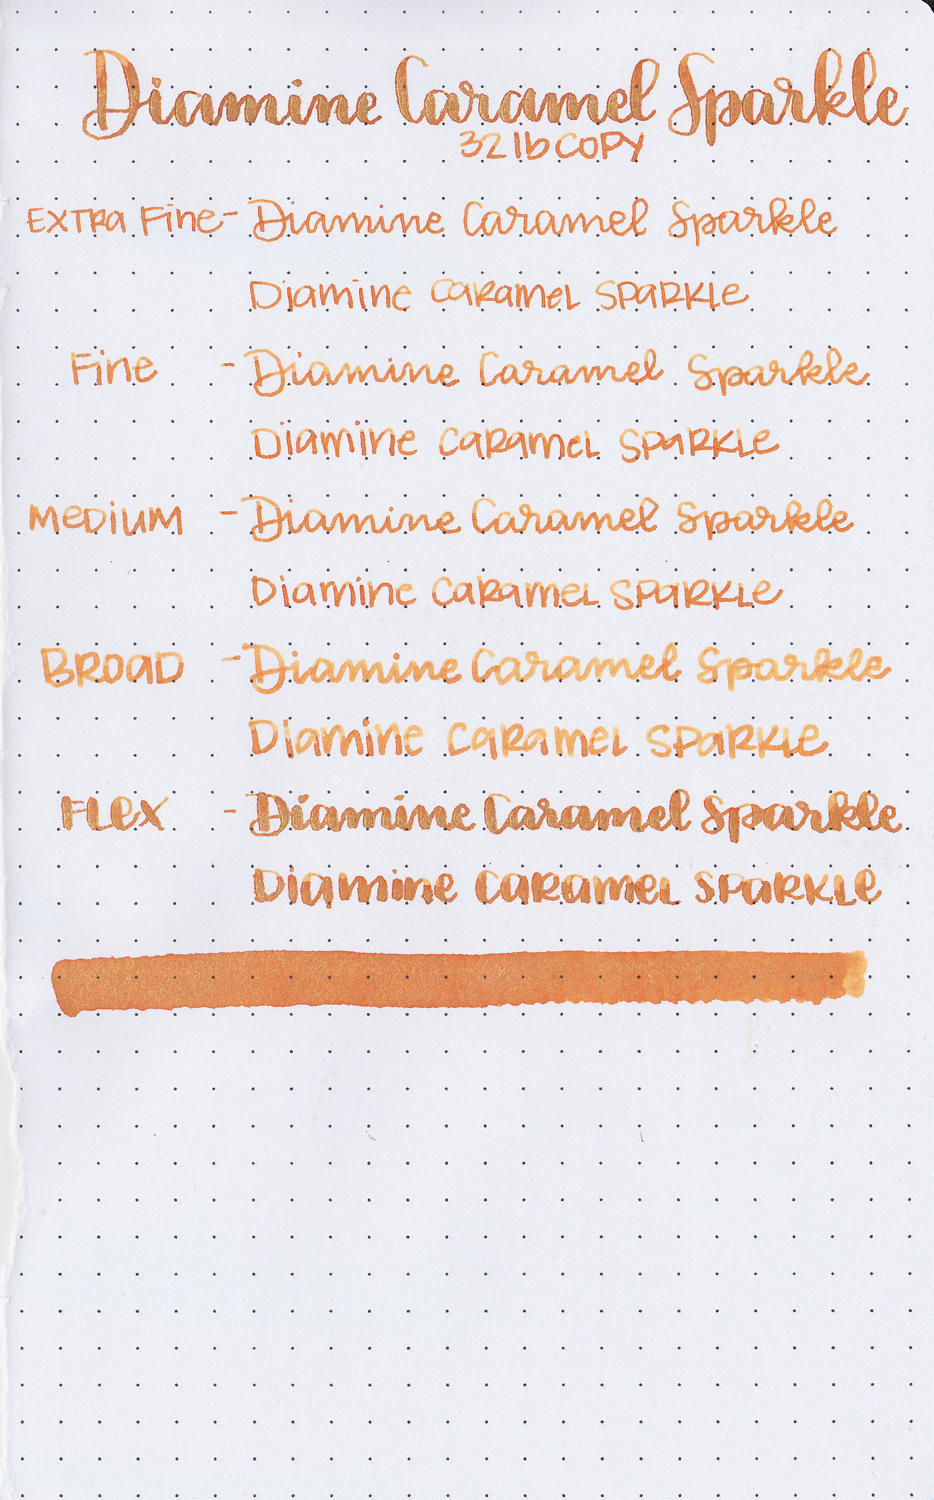 Diamine Caramel Sparkle
32 lb COPY
EXTRA Fine - Diamine Caramel Sparkle
Diamine CARAMEL SPARKLE
Fine - Diamine Caramel Sparkle
Diamine CARAMEL SPARKLE
MEDIUM - Diamine Caramel Sparkle
Diamine CARAMEL SPARKLE
BROAD - Diamine Caramel Sparkle
Diamine CARAMEL SPARKLE
FLEX - Diamine Caramel Sparkle
Diamine CARAMEL SPARKLE